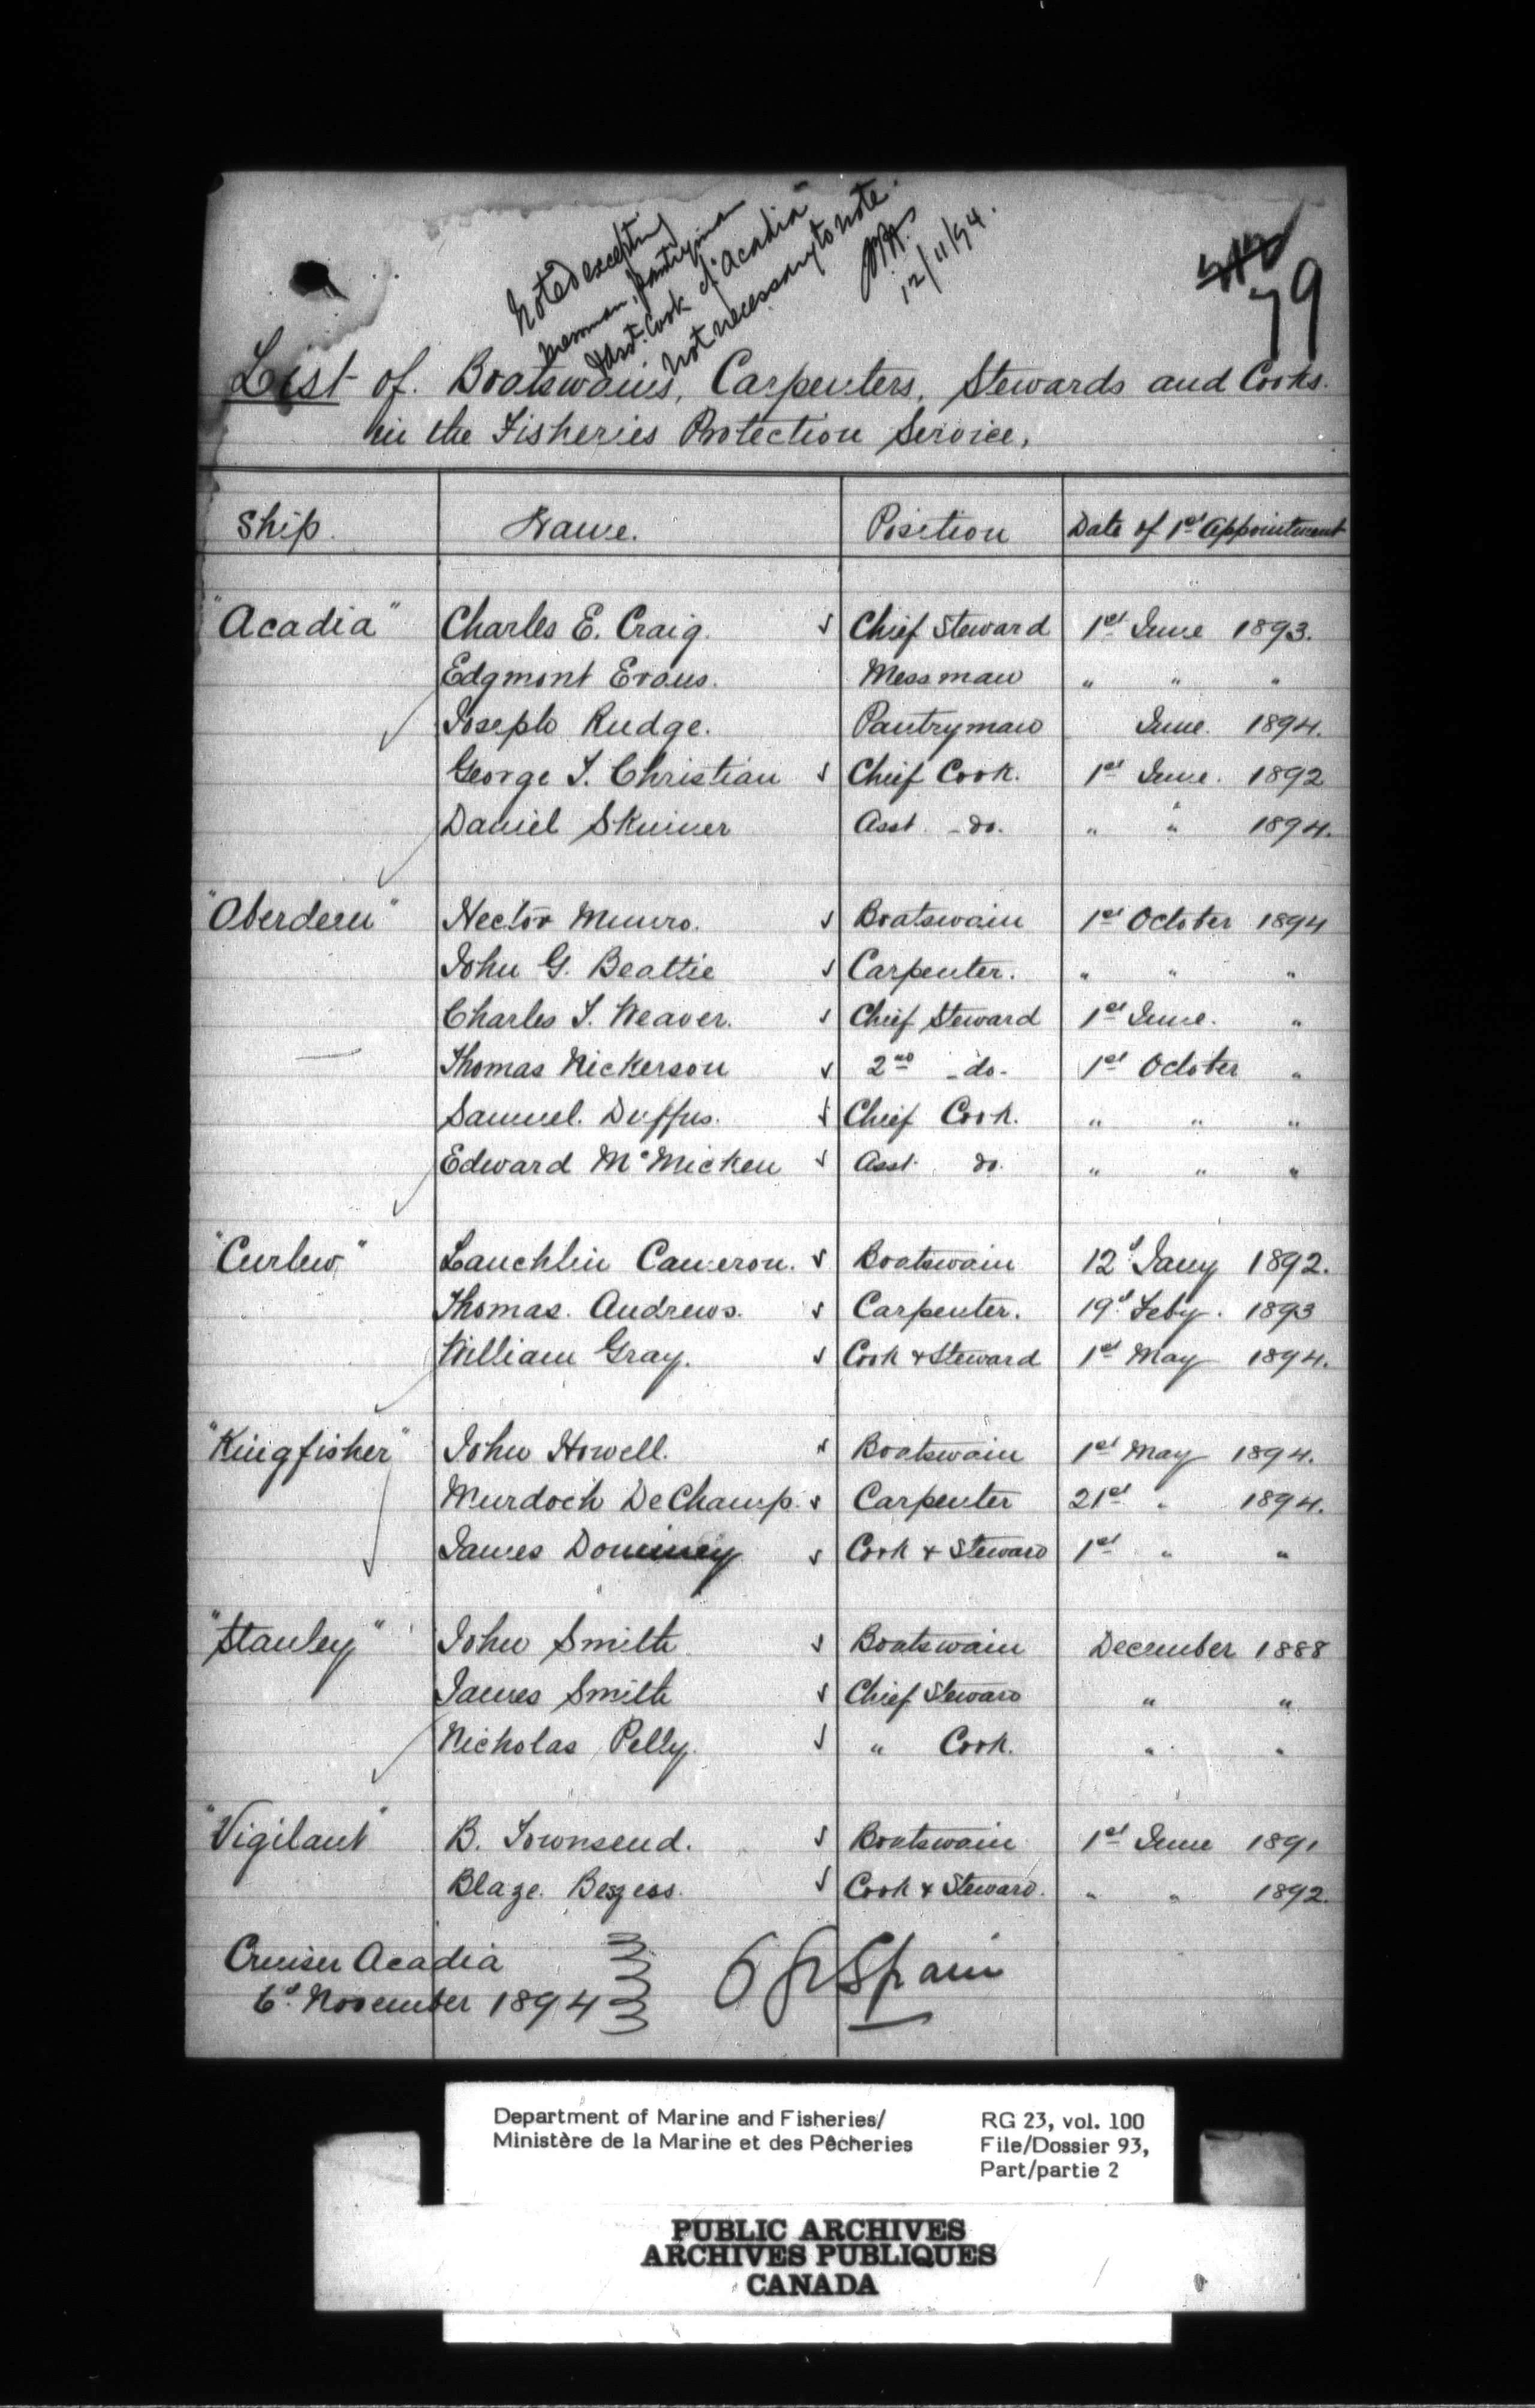 Noted excepting
messman, pantryman
& Asst. Cook of "Acadia"
not necessary to note.
12/11/94.
79
List of Boatswains, Carpenters, Stewards and Cooks.
in the Fisheries Protection Service,
Ship. Name. Position Date of 1st Appointment
"Acadia" Charles E. Craig. Chief Steward 1st June 1893.
Edgmont Evans. Messman " " "
Joseph Rudge. Pantryman June. 1894.
George T. Christian Chief Cook. 1st June. 1892
Daniel Skinner Asst. -do. " " 1894.
"Aberdeen" Hector Munro. Boatswain 1st October 1894
John G. Beattie Carpenter. " " "
Charles T. Weaver. Chief Steward 1st June. "
Thomas Nickerson 2nd -do- 1st October "
Samuel. Duffus. Chief Cook. " " "
Edward McMicken Asst. do. " " "
"Curlew" Lauchlin Cameron. Boatswain 12th Jany 1892.
Thomas. Andrews. Carpenter. 19th Feby. 1893
William Gray. Cook & Steward 1st May 1894.
"Kingfisher" John Howell. Boatswain 1st May 1894.
Murdoch DeChamp. Carpenter 21st " 1894.
James Dominey Cook & Steward 1st " "
"Stanley" John Smith Boatswain December 1888
James Smith Chief Steward " "
Nicholas Pelly. " Cook. " "
"Vigilant" B. Townsend. Boatswain 1st June 1891
Blaze. Cook & Steward. " " 1892.
Cruiser Acadia
6th November 1894 Spain
Department of Marine and Fisheries/ RG 23, vol. 100
Ministère de la Marine et des Pêcheries File/Dossier 93,
Part/partie 2
PUBLIC ARCHIVES
ARCHIVES PUBLIQUES
CANADA